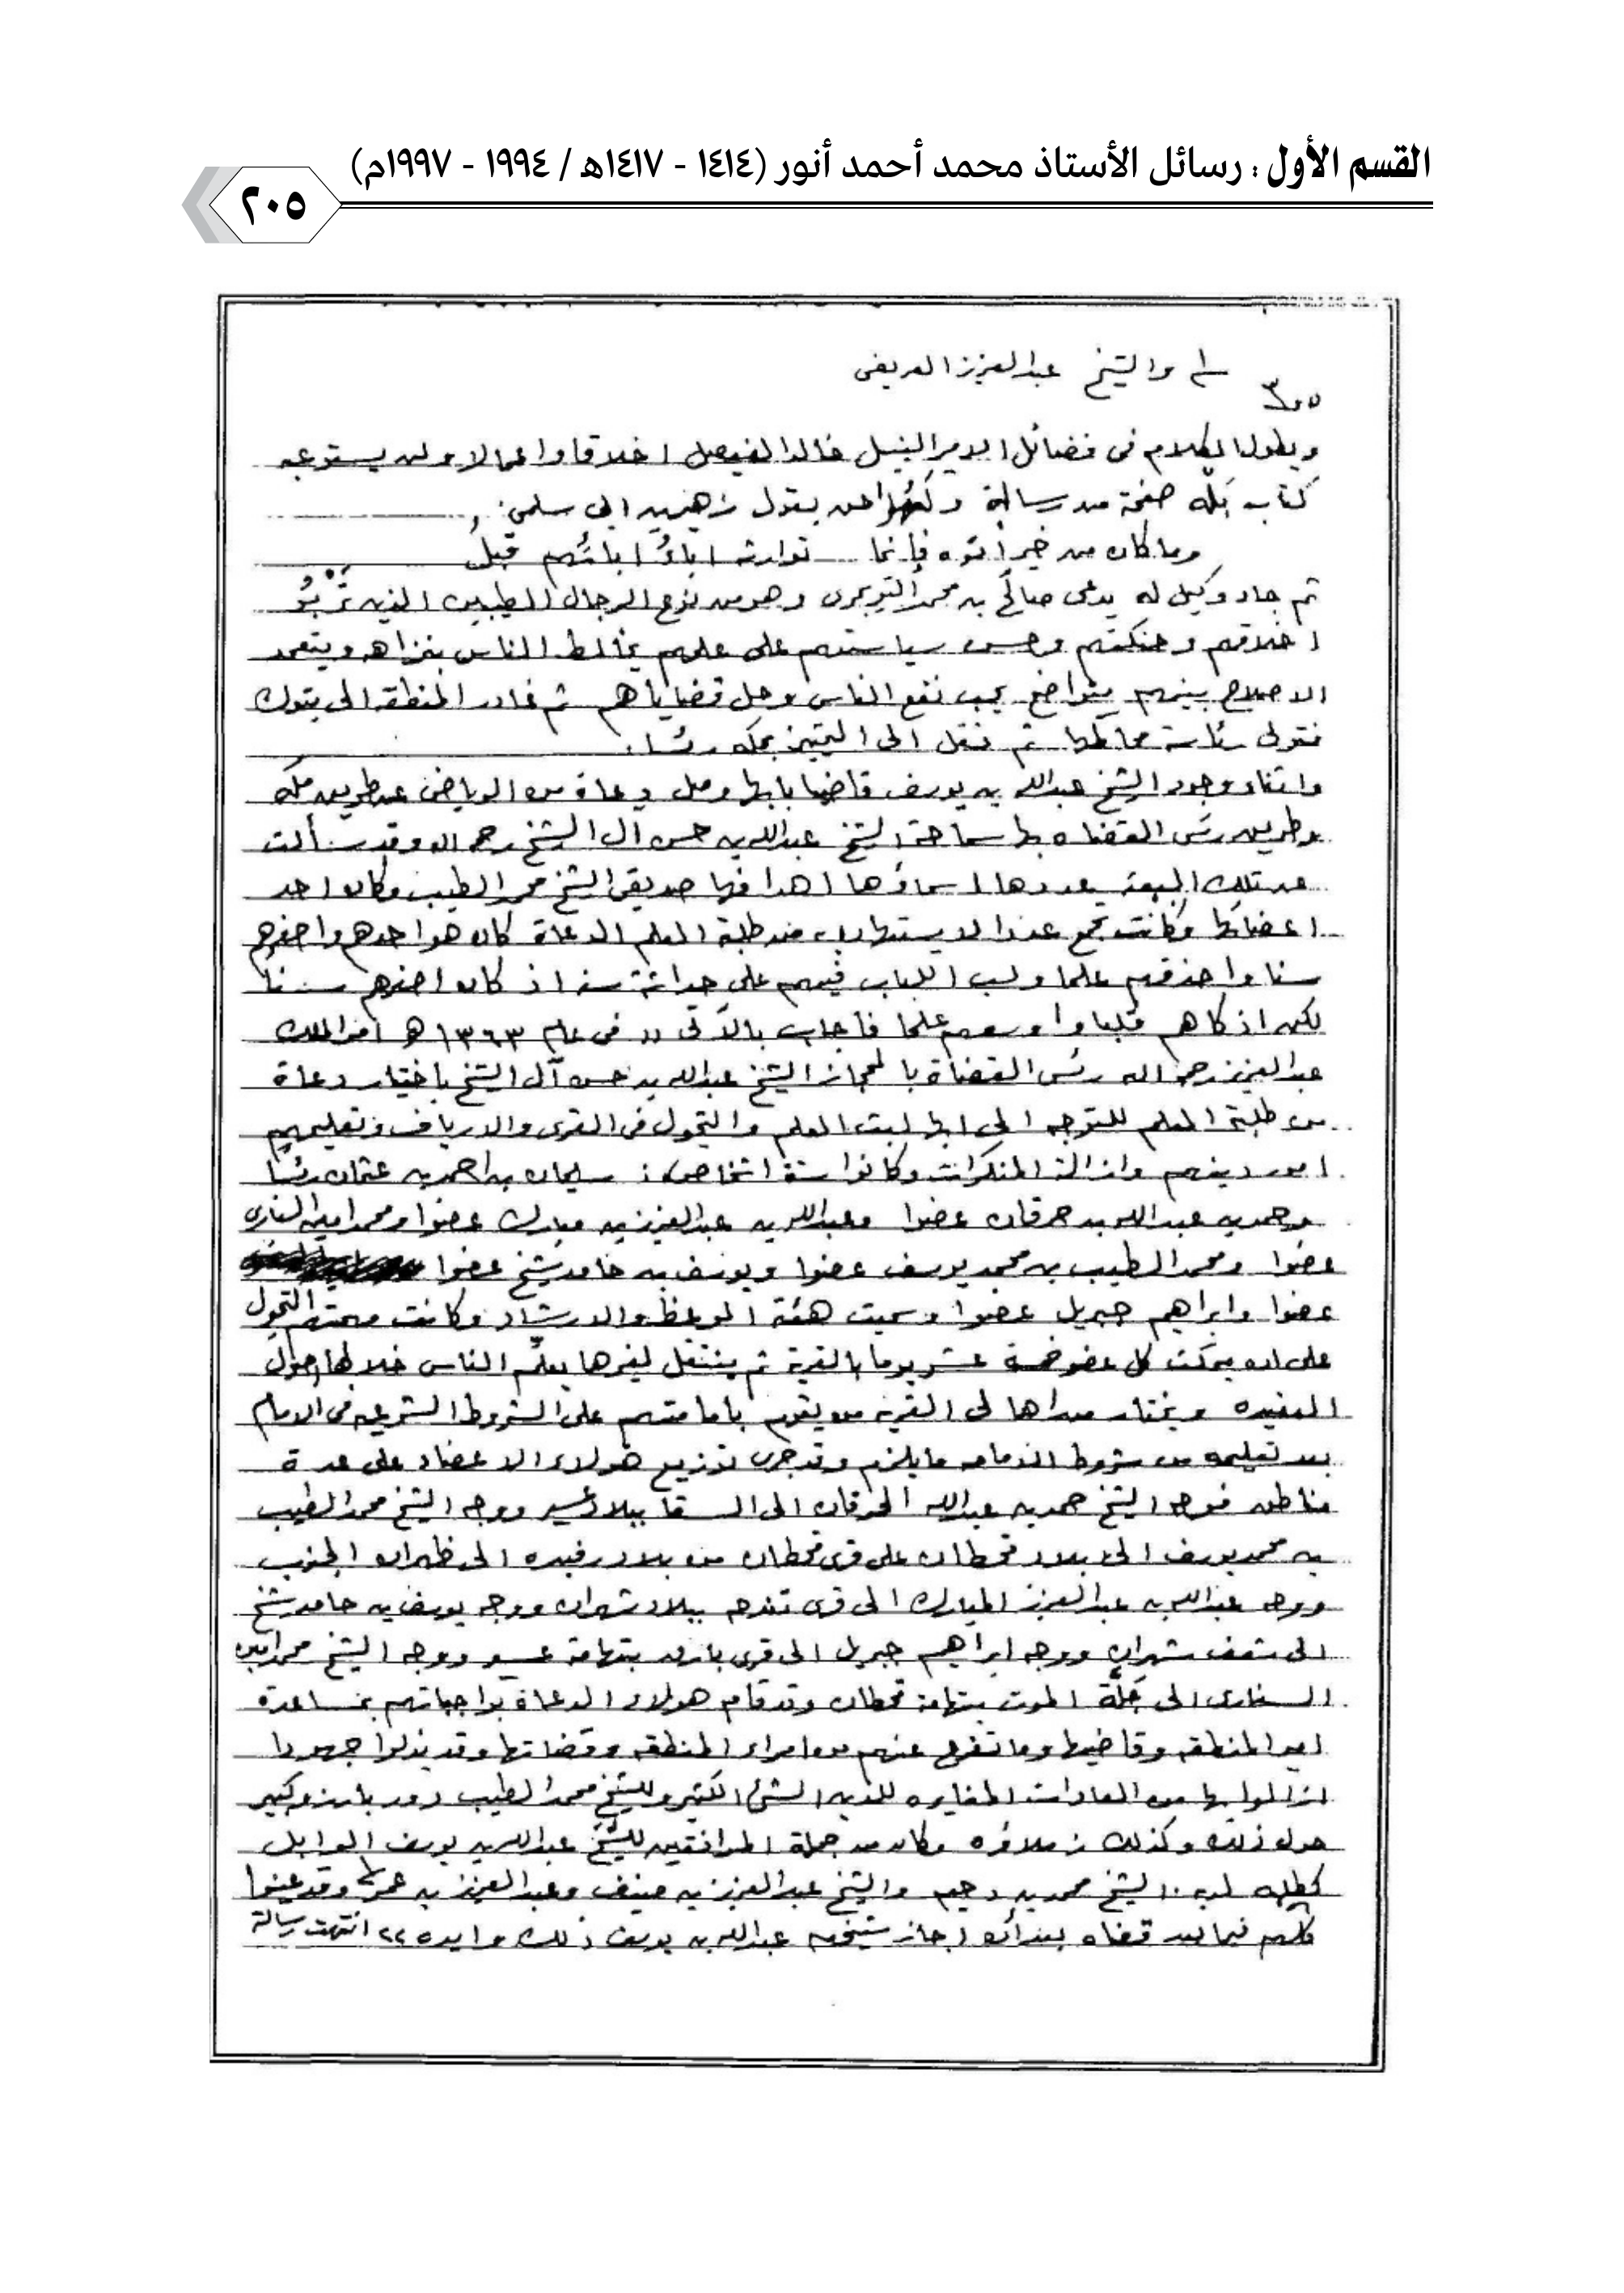 القسم الأول : رسائل الأستاذ محمد أحمد أنور (١٤١٤ - ١٤١٧هـ / ١٩٩٤ - ١٩٩٧م)
٢٠٥
والشيخ عبدالعزيز العريفى
ويطول الكلام فى فضائل الامير النبيل خالد الفيصل اخلاقا واعمالا ولن يستوعبه
كتاب بله صفحة من رسالة يقول زهير بن ابى سلمى:
وما كان من خير أتوه فإنما توارثه اباءُ ابائهم قبلُ
ثم جاء وكيل له يدعى صالح بن محمد التويجرى وهو من نوع الرجال الطيبين الذين
اخلاقهم وحنكتهم وحسن سياستهم على علمهم يخالط الناس بنزاهه ويتعمد
الاصلاح بينهم متواضع يحب نفع الناس وحل قضاياهم ثم غادر المنطقه الى تبوك
فتولى رئاسة محاكمها ثم نقل الى التمييز بمكه رئيسا.
واثناء وجود الشيخ عبدالله بن يوسف قاضيا بابها وصل دعاة من الرياض عن طريق مكه
وطريق رئيس القضاه بها سماحة الشيخ عبدالله بن حسن ال الشيخ رحمه الله وقد سألت
عن تلك البعثه عددها اسماؤها اهدافها صديقى الشيخ محمد الطيب وكان احد
اعضائها وكانت تجمع عددا لا يستهان به من طلبة العلم الدعاة كان هو احدهم واصغرهم
سنا واحذقهم علما ولب اللباب فيهم على حداثة سنه اذ كان اصغرهم سناً
لكنه اذكاهم قلبا واوسعهم علما فأجاب بالآتى (( فى عام ١٣٦٣هـ امر الملك
عبدالعزيز رحمه الله رئيس القضاة بالحجاز الشيخ عبدالله بن حسن آل الشيخ باختيار دعاة
من طلبة العلم للتوجه الى ابها لبث العلم والتجول فى القرى والارياف وتعليمهم
امور دينهم وازالة المنكرات وكانوا ستة اشخاص: سليمان بن احمد بن عثمان رئيسا
وحمد بن عبدالله بن حرقان عضوا وعبدالله بن عبدالعزيز بن مبارك عضوا ومحمد امين
عضوا ومحمد الطيب بن محمد يوسف عضوا ويوسف بن حامد شيخ عضوا
عضوا وابراهيم جبريل عضوا وسميت هيئة الوعظ والارشاد وكانت مهمتهم التجول
على ان يمكث كل عضو خمسة عشر يوما بالقرية ثم ينتقل لغيرها يعلّم الناس خلالها اصول
العقيده ويختار من اهالى القريه من يقوم بامامتهم على الشروط الشرعيه فى الامام
بعد تعليمه من شروط الامامه ما يلزم وقد جرى توزيع هولاء الاعضاء على عدة
مناطق فوجه الشيخ حمد بن عبدالله الحرقان الى السقا ببلاد عسير ووجه الشيخ محمد الطيب
بن محمد يوسف الى بلاد قحطان على قرى قحطان من بلاد رفيده الى ظهران الجنوب
ووجه عبدالله بن عبدالعزيز المبارك الى قرى تندحه ببلاد شهران ووجه يوسف بن حامد شيخ
الى شعف شهران ووجه ابراهيم جبريل الى قرى بتهامة عسير ووجه الشيخ محمد امين
الى جَلّة الموت بتهامة قحطان وقد قام هولاء الدعاة بواجباتهم بمساعدة
امير المنطقه وقاضيها وما تفرع عنهم من امراء المنطقه وقضاتها وقد بذلوا جهودا
ازالوا بها من العادات المغايره للدين الشئ الكثير وللشيخ محمد الطيب دور بارز وكبير
حول ذلك وكذلك زملاؤه وكان من جملة المرافقين للشيخ عبدالله بن يوسف الوابل
كطلبه لديه الشيخ محمد بن دحيم والشيخ عبدالعزيز بن حنيف وعبدالعزيز بن عمر وقد عينوا
كلهم فيما بعد قضاه بعد أن اجاز شيخهم عبدالله بن يوسف ذلك وايده )) انتهت رسالة